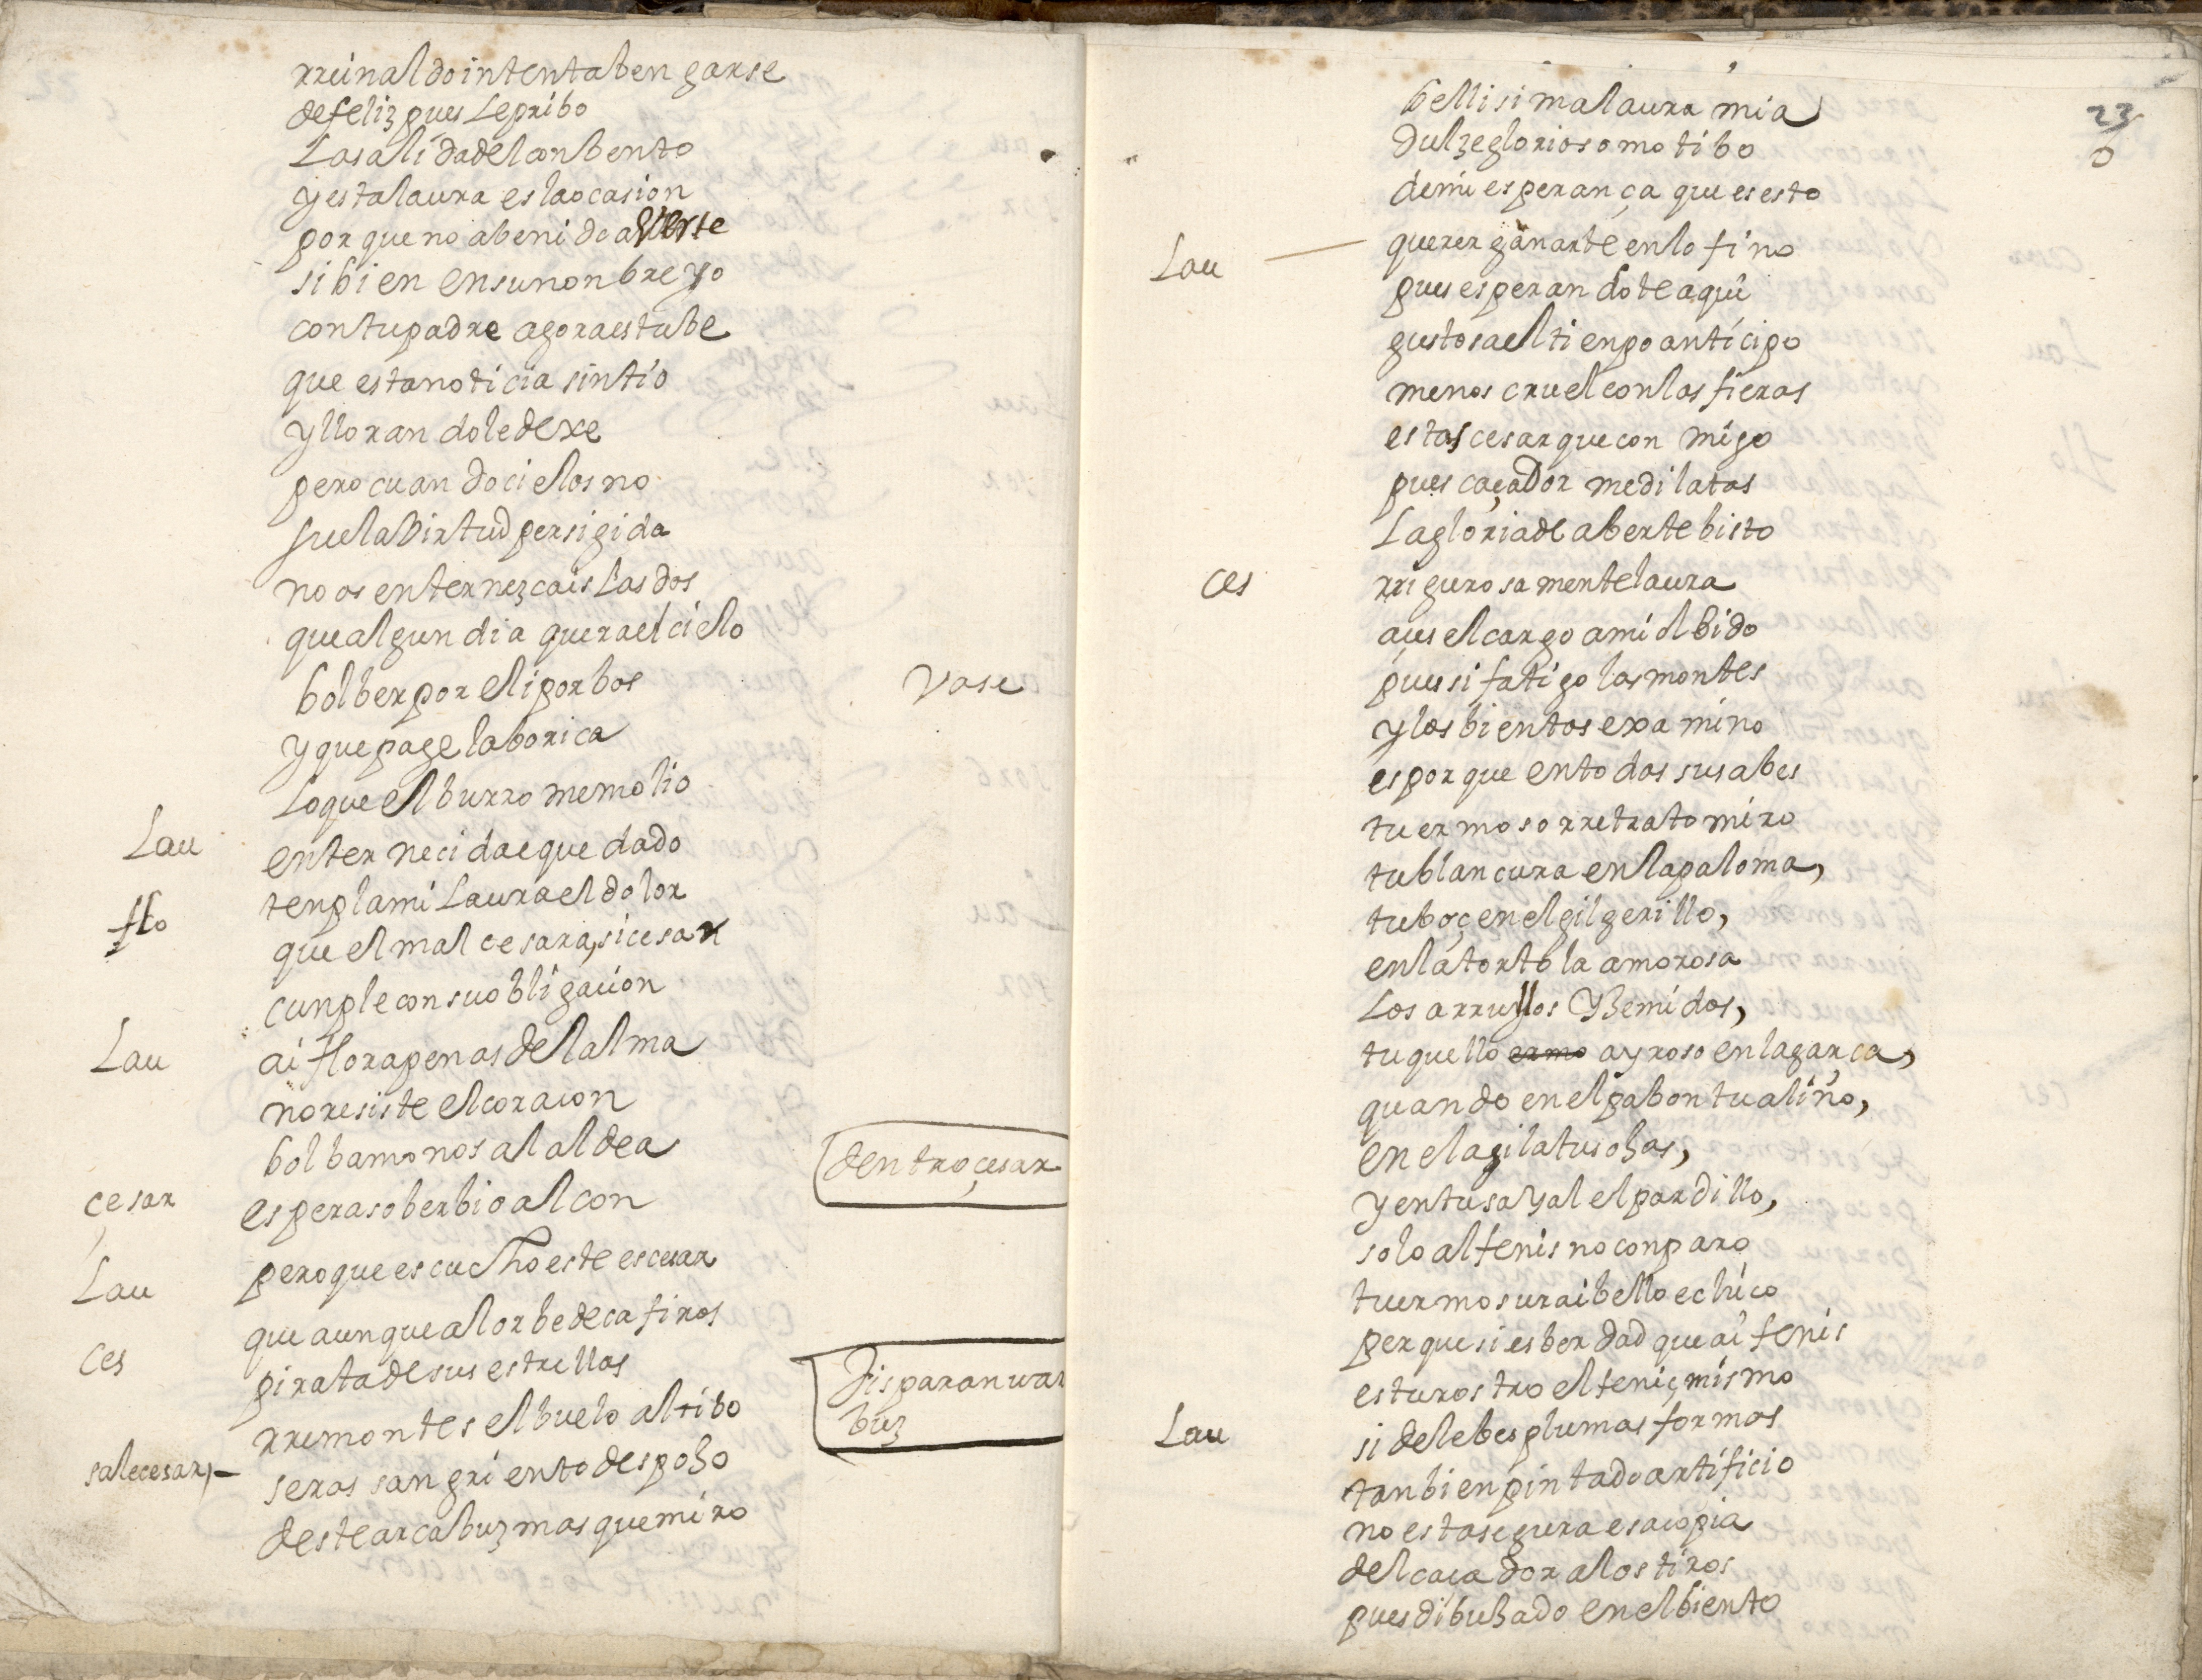 rreinaldo intenta bengarse
de feliz pues le pribo
la salida del conbento
y esta laura es la ocasion
por que no a benido a verte
si bien en su nonbre yo
con tu padre agora estube
que esta noticia sintio
y llorando le dexe
pero cuando cielos no
fue la birtud persigida
no os enternezcais las dos
que algun dia quera el cielo
bolber por el i por bos
vase
y que page la borica
lo que el burro me molio
Lau enternecida e quedado
flo tenpla mi Laura el dolor
que el mal cesara, si cesar
cunple con su obligacion
Lau ai flora penas del alma
no resiste el coracon
bolbamonos al aldea
dentro çesar
çesar espera soberbio alcon
Lau pero que escucho este es cesar
Ces que aunque al orbe de cafiros
pirata de sus estrellas
disparan un ar
buz
rremontes el buelo altibo
sale cesar, seras sangriento despoho
deste arcabuz mas que miro
23
0
bellisima laura mia
dulze glorioso motibo
de mi esperança que es esto
Lau querer ganarte en lo fino
pues esperandote aqui
gustosa el tienpo anticipo
menos cruel con las fieras
estas cesar que con migo
pues caçador me dilatas
la gloria de aberte bisto
Ces rrigurosamente laura
aces el cargo a mi olbido
pues si fatigo los montes
y los bientos examino
es por que en todas sus abes
tu ermoso rretrato miro
tu blancura en la paloma,
tu boç en el gilgerillo,
en la tortola amorosa
los arrullos y gemidos,
tu quello ermo ayroso en la garça,
quando en el pabon tu aliño,
en el agila tus ohos,
y en tu sayal el pardillo,
solo al fenis no conparo
tu ermosura i bello echico
per que si es berdad que ai fenis
es tu rostro el feniç mismo
Lau si de lebes plumas formas
tan bien pintado artificio
no esta segura esa copia
del caçador a los tiros
pues dibuhado en el biento